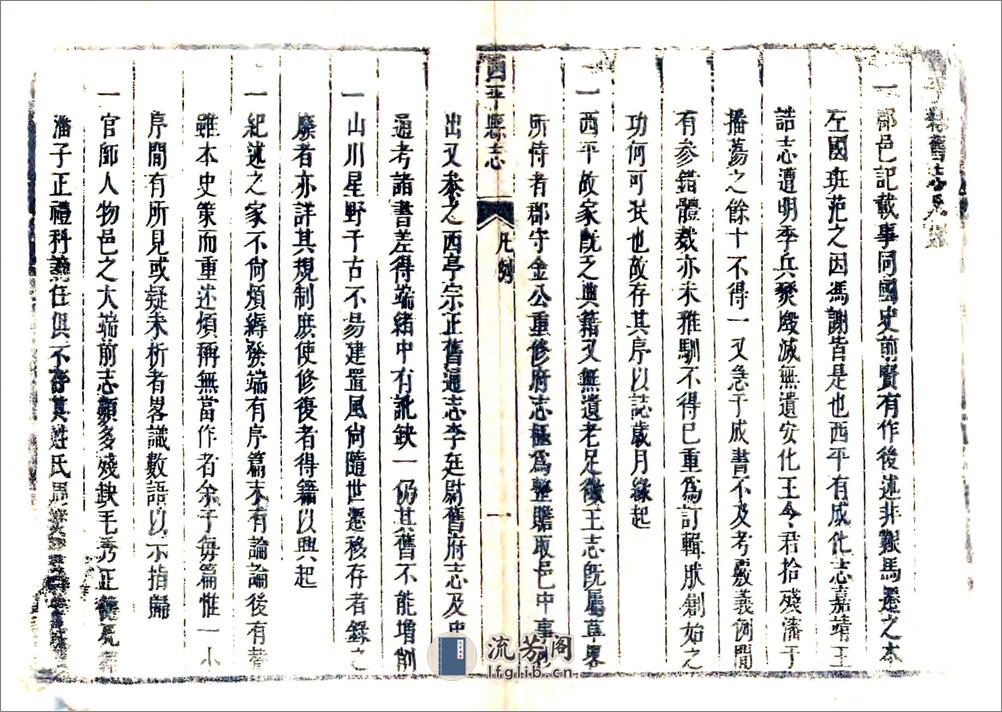 舊志凡例
一郡邑記載事同國史前賢有作後述非艱馬遷之本
左國班范之因馮謝皆是也西平有成化志嘉靖王
誥志遭明季兵燹廢滅無遺安化王令君拾殘瀋于
播蕩之餘十不得一又急于成書不及考覈義例間
有參錯體裁亦未雅馴不得已重為訂輯肰創始之
功何可泯也故存其序以誌歲月緣起
一西平故家旣乏典籍又無遺老足徵王志旣屬草畧
所恃者郡守金公重修府志極為整贍取邑中事
西平縣志
凡例
一
出又叅之西亭宗正舊通志李廷尉舊府志及史
通考諸書差得端緒中有訛缺一仍其舊不能增削
一山川星野千古不易建置風尚隨世遷移存者錄之
廢者亦詳其規制庶使修復者得籍以興起
一紀述之家不尚煩縟發端有序篇末有論論後有贊
雖本史策而重述煩稱無當作者余于每篇惟一小
序間有所見或疑未析者畧識數語以示指歸
一官師人物邑之大端前志頗多殘缺毛秀正
潘子正禮科謫任俱不存其姓氏
流芳阁
lfglib.cn